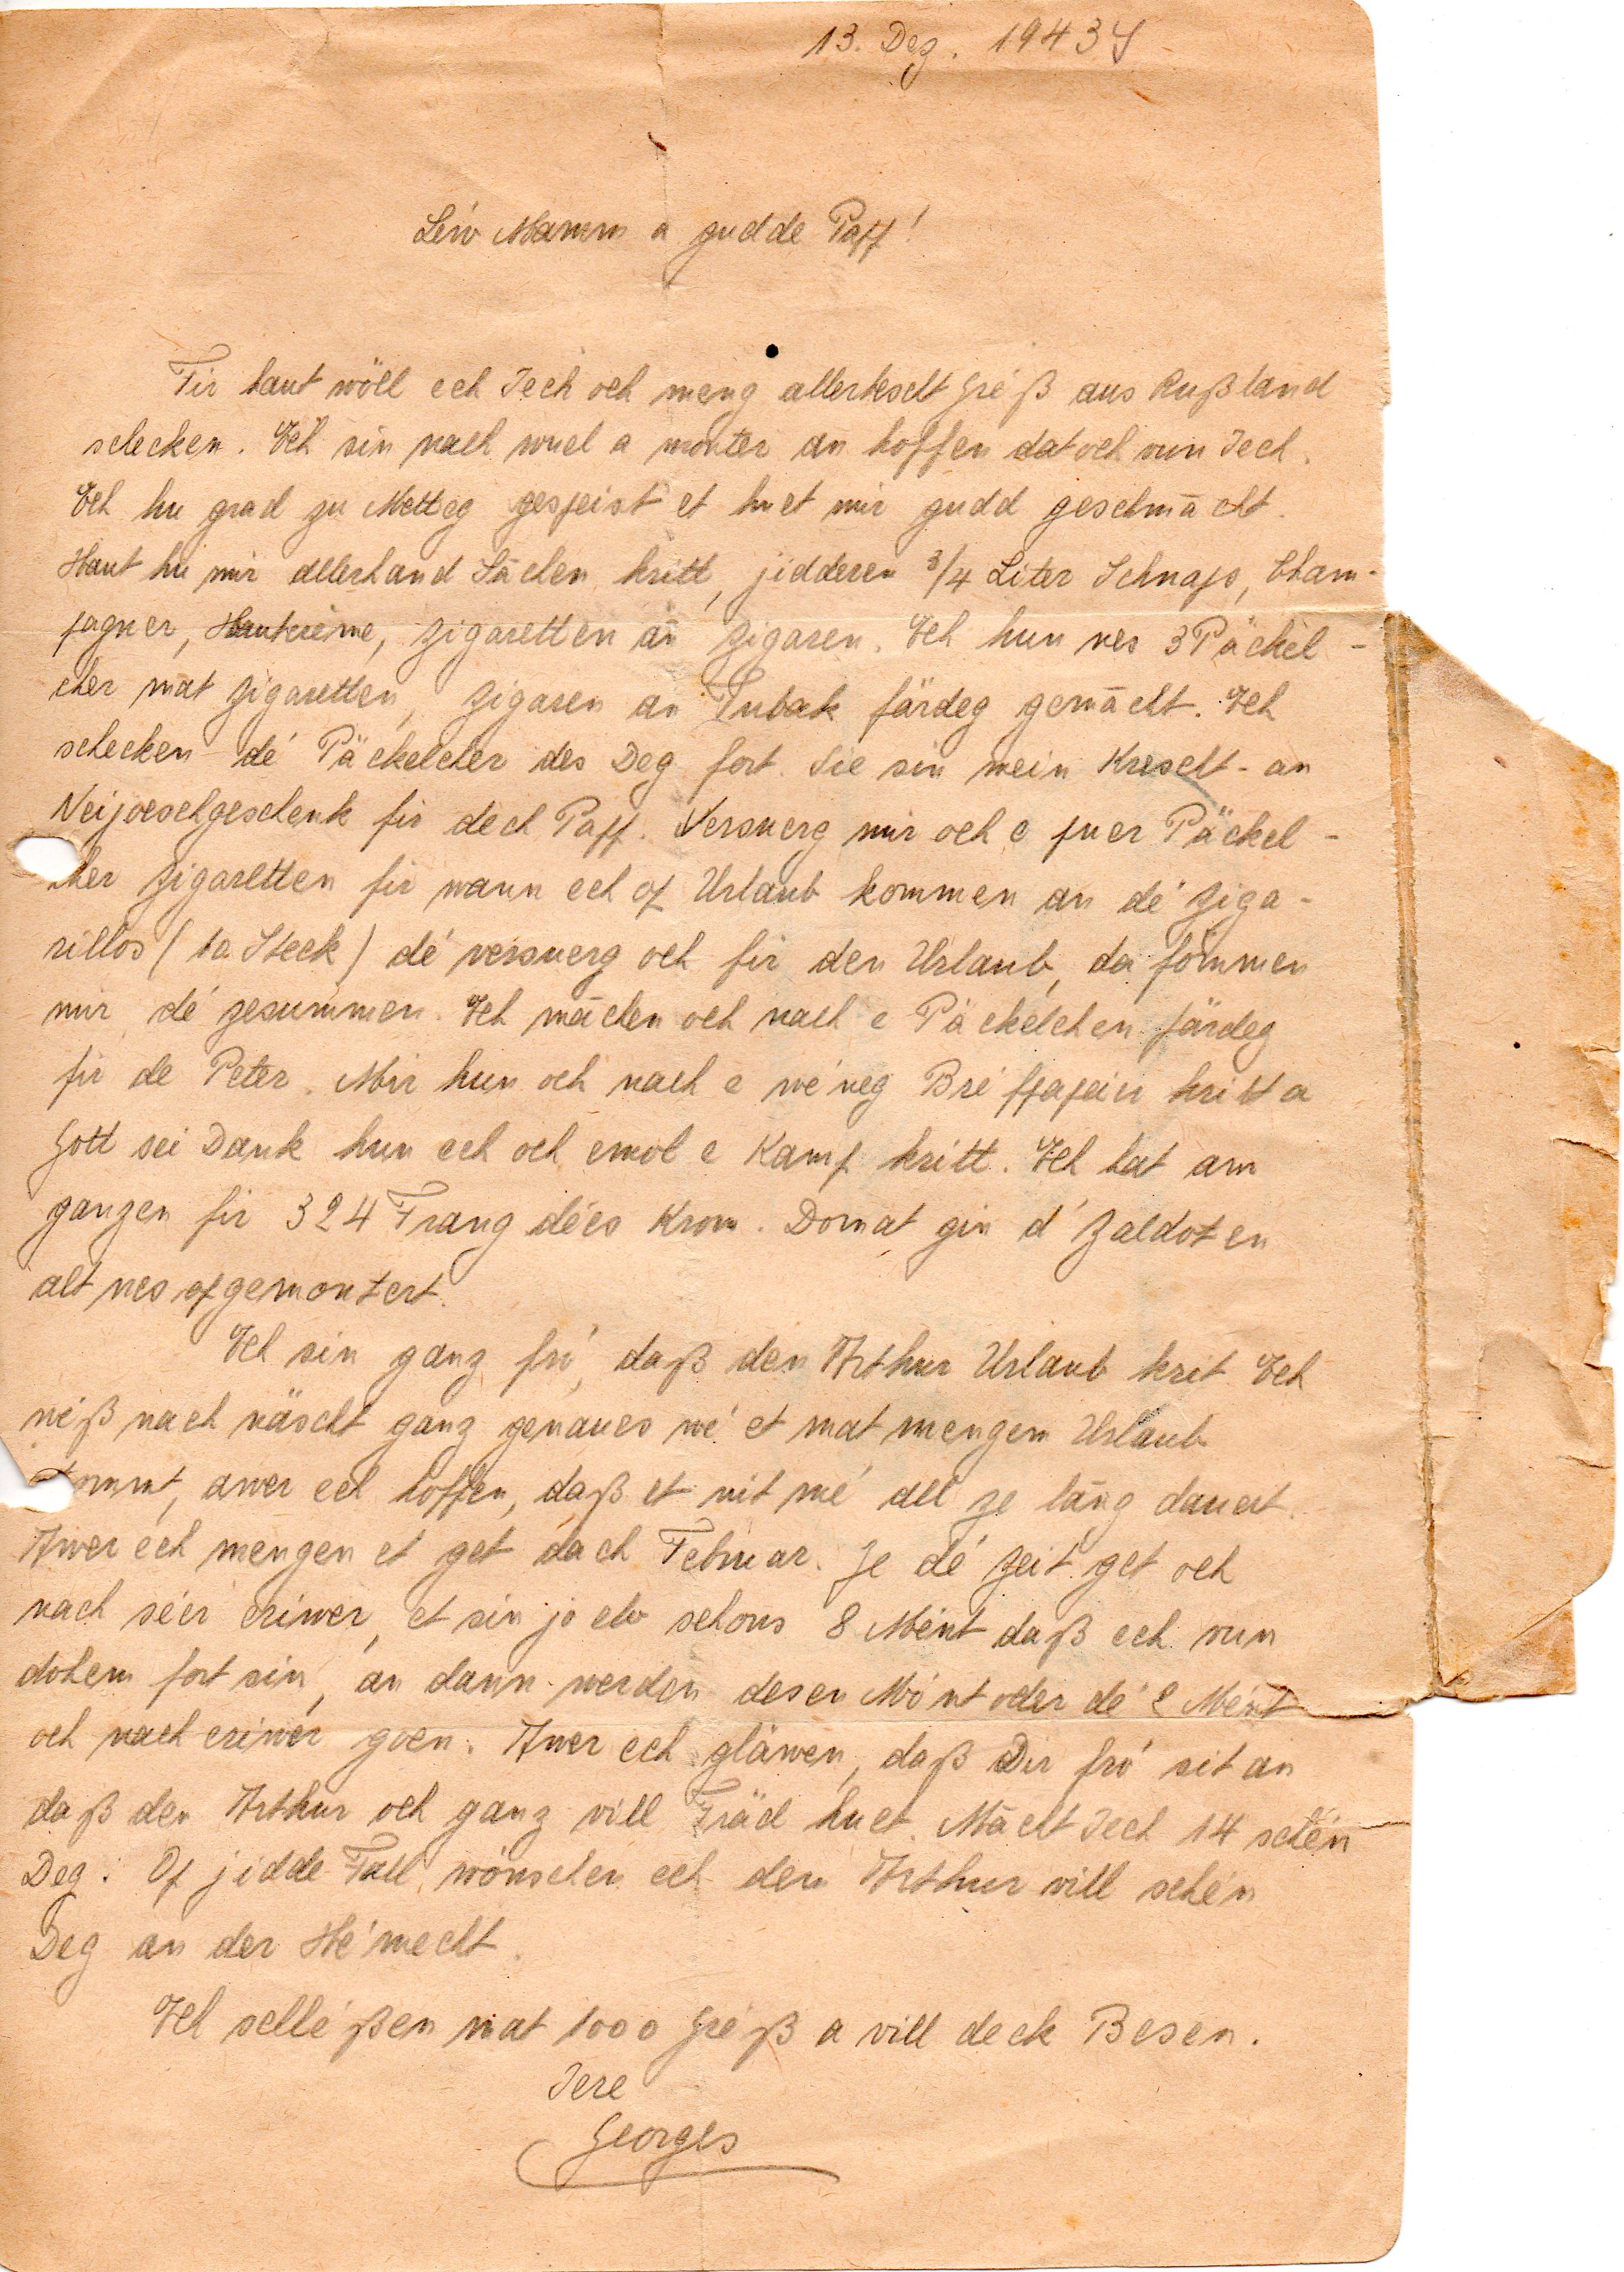 13. Dez. 1943
Léiw Mamm a gudde Papp!
Fir haut wöll ech Iech och meng allerbescht Gréß aus Rußland
schecken. Ech sin nach wuel a monter an hoffen dat och vun Iech.
Ech hu grad zu Metteg gespeist et huet mir gudd geschmācht.
Haut hu mir allerhand Sāchen kritt, jidderen 3/4 Liter Schnaps, Cham-
pagner, Hautcrème, Zigaretten an Zigaren. Ech hun nes 3 Päckel-
cher mat Zigaretten, Zigaren an Tubak färdeg gemācht. Ech
schecken dé Päckelcher des Deg fort. Sie sin mein Krescht- an
Neijoeschgeschenk fir dech Papp. Versuerg mir och e puer Päckel-
cher Zigaretten fir wann ech op Urlaub kommen an dé Ziga-
rillos (10 Steck) dé versuerg och fir den Urlaub, da fömmen
mir dé zesummen. Ech māchen och nach e Päckelchen färdeg
fir de Peter. Mir hun och nach e wéneg Bréfpapeier kritt a
Gott sei Dank hun ech och emol e Kamp kritt. Ech hat am
ganzen fir 324 Frang dées Krom. Domat gin d'Zaldoten
alt nes opgemontert.
Ech sin ganz fró, daß den Arthur Urlaub krit. Ech
wéß nach näscht ganz genaues wé et mat mengem Urlaub
kommt, awer ech hoffen, daß et nit mé all ze lāng dauert.
Awer ech mengen et get dach Februar. Je dé Zeit get och
nach séer eriwer, et sin jo elo schons 8 Mént daß ech vun
dohem fort sin, an dann werden desen Mónt oder dé 2 Mént
och nach eriwer goen. Awer ech gläwen, daß Dir fró sit an
daß den Arthur och ganz vill Fräd huet. Mācht Iech 14 schén
Deg. Op jidde Fall wönschen ech den Arthur vill schén
Deg an der Hémecht.
Ech schléßen mat 1000 Gréß a vill deck Besen.
Iere
Georges